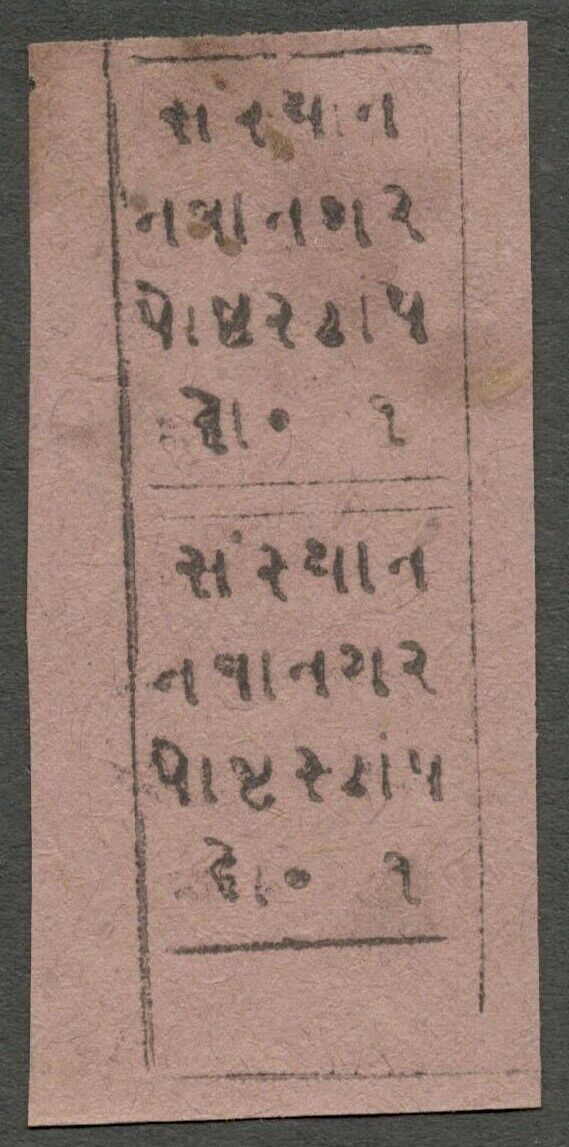 સંસ્થાન
નવાનગર
પોષ્ટસ્ટાંપ
દો૦ ૧
સંસ્થાન
નવાનગર
પોષ્ટસ્ટાંપ
દો૦ ૧